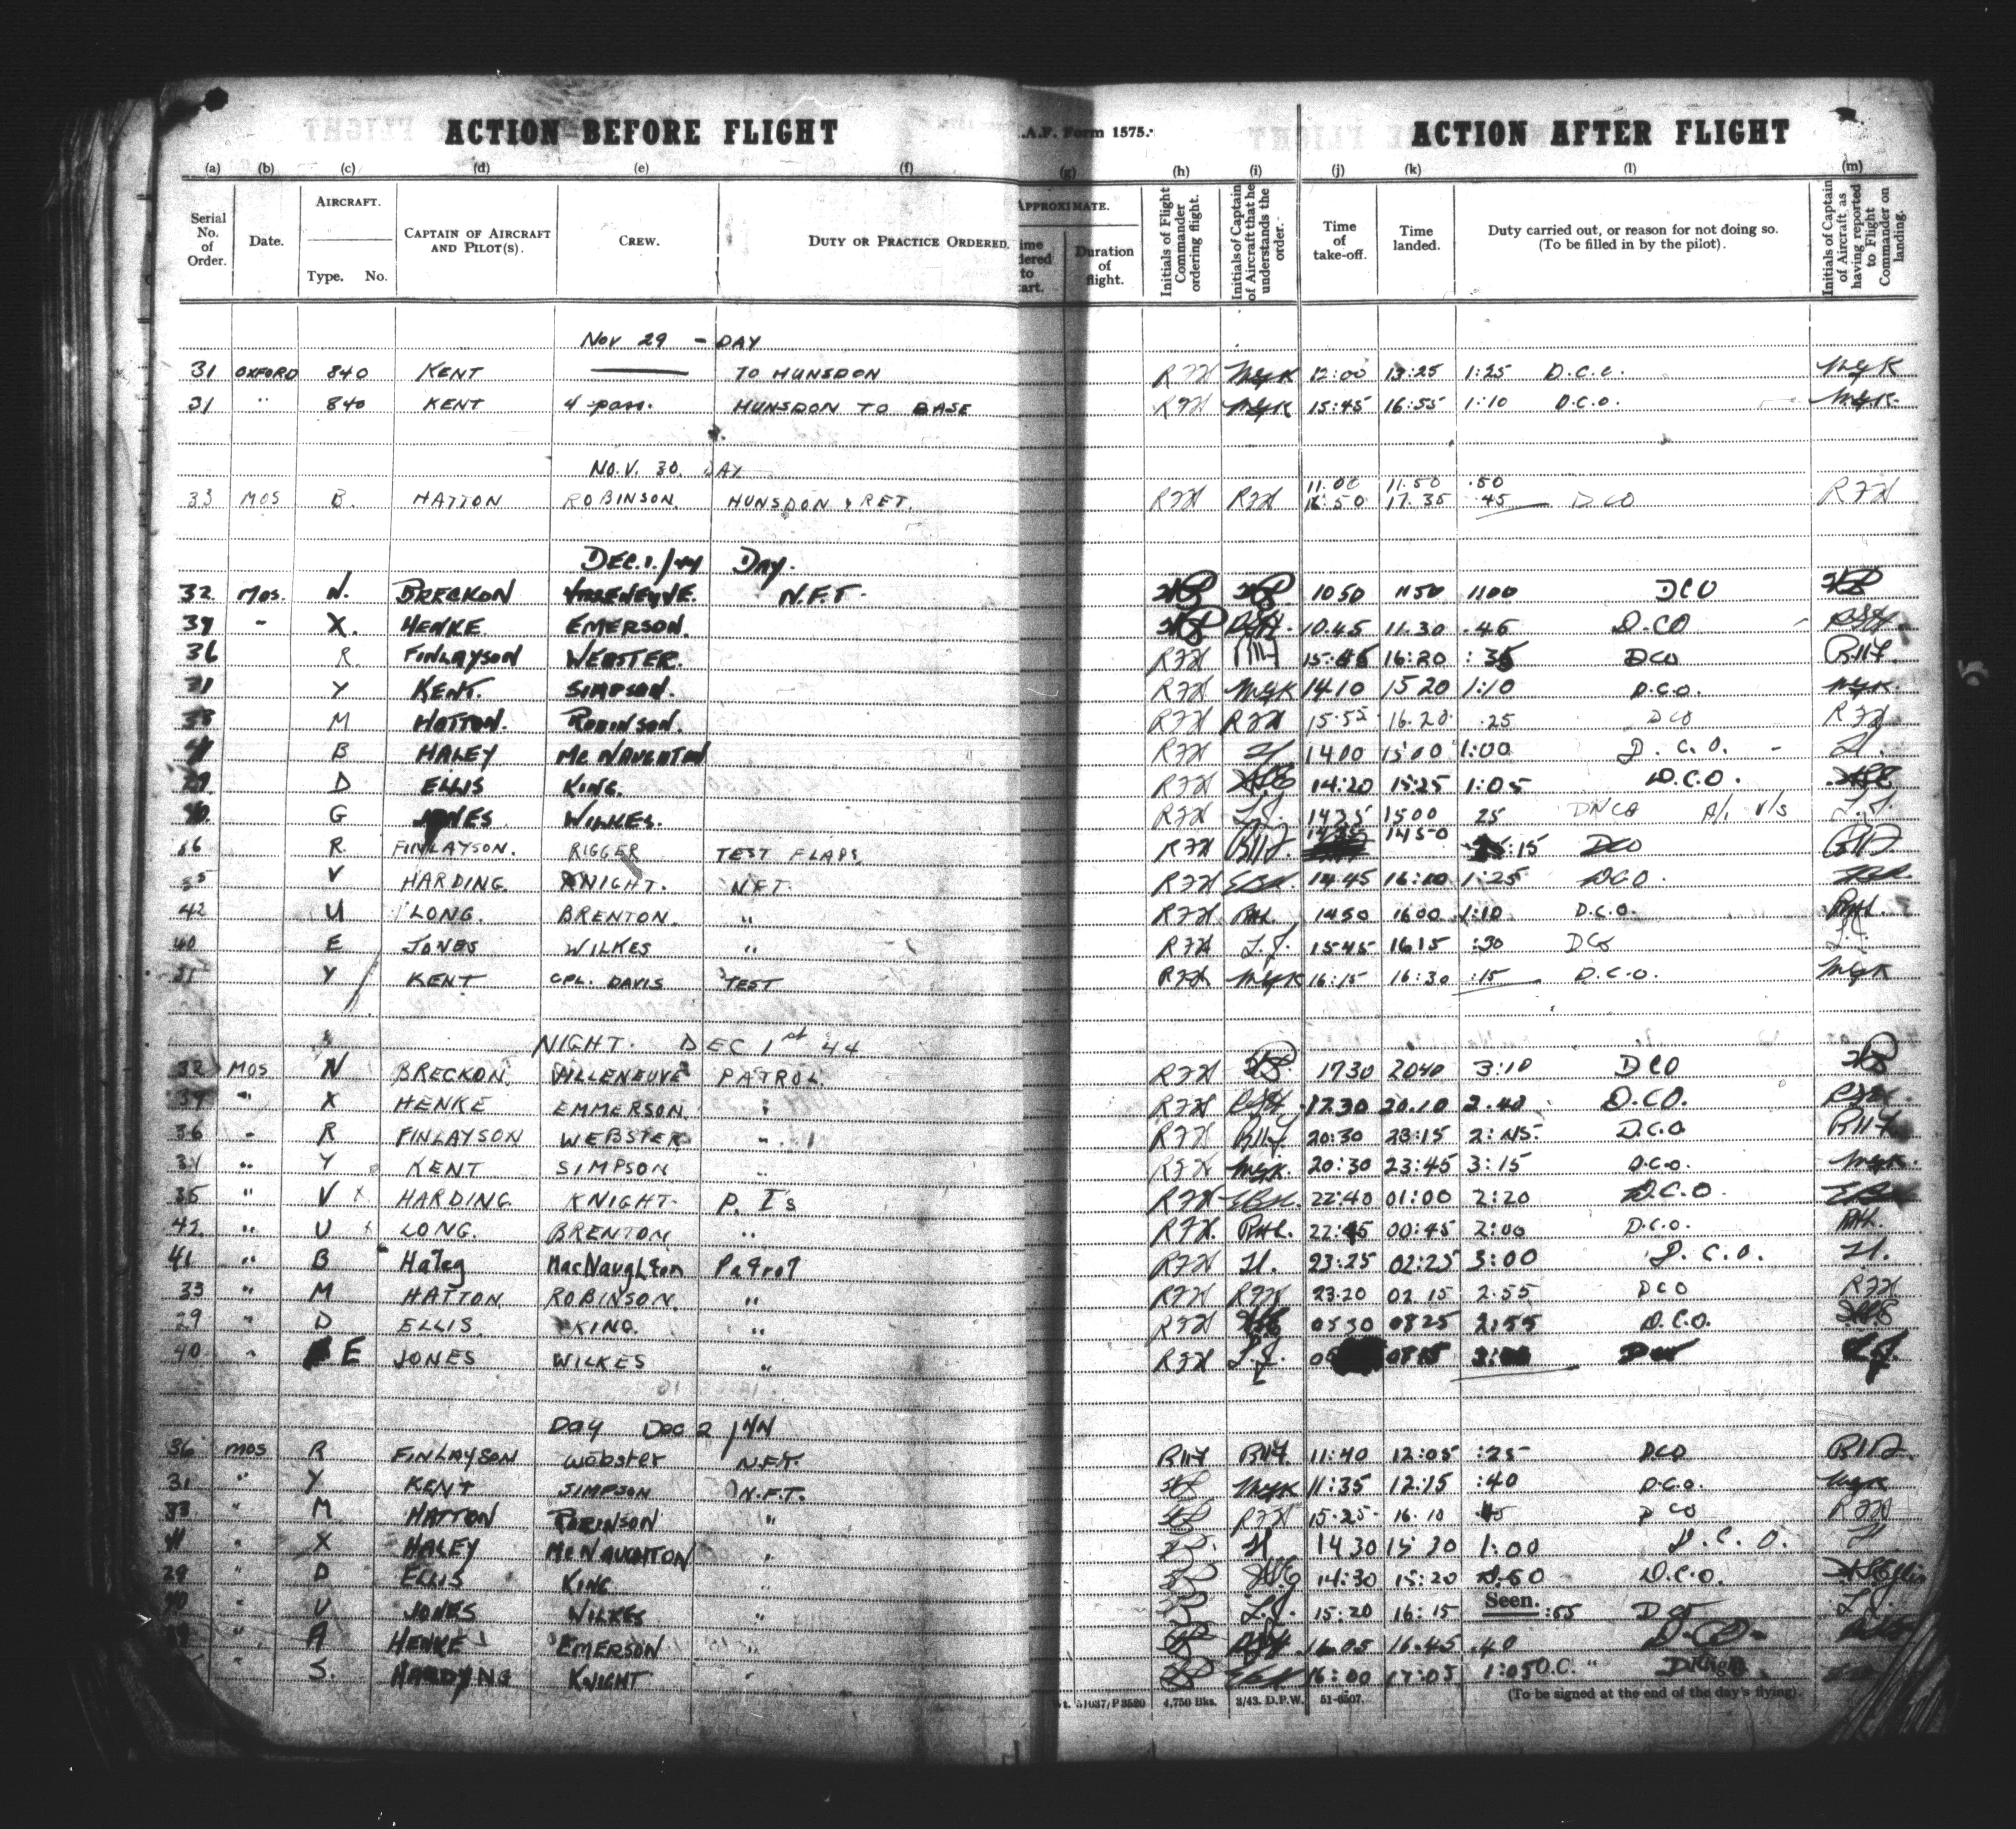 ACTION BEFORE FLIGHT .A.F. Form 1575. ACTION AFTER FLIGHT
(a) (b) (c) (d) (e) (f) (g) (h) (i) (j) (k) (l) (m)
Serial No. of Order.
Date.
AIRCRAFT.
Type. No.
CAPTAIN OF AIRCRAFT AND PILOT(S).
CREW.
DUTY OR PRACTICE ORDERED.
APPROXIMATE.
Duration of flight.
Initials of Flight Commander ordering flight.
Initials of Captain of Aircraft that he understands the order.
Time of take-off.
Time landed.
Duty carried out, or reason for not doing so. (To be filled in by the pilot).
Initials of Captain of Aircraft, as having reported to Flight Commander on landing.
NOV 29 - DAY
31 OXFORD 840 KENT TO HUNSDON RFH MGK 12:00 13:25 1:25 D.C.C. MGK
31 " 840 KENT 4 pass. HUNSDON TO BASE RFH MGK 15:45 16:55 1:10 D.C.O. MGK
NOV. 30. DAY
11.00 11.50 .50
33 MOS B. HATTON ROBINSON. HUNSDON & RET. RFH RFH 16:50 17.35 .45 DCO RFH
DEC.1./44 DAY.
32 Mos. N. BRECKON VILLENEUVE. N.F.T. 1050 1150 1100 DCO
39 - X. HENKE EMERSON. 10.45 11.30 .45 D.CO
36 R. FINLAYSON WEBSTER. RFH 16:20 DCO
31 Y KENT. SIMPSON. RFH MGK 14.10 15 20 1:10 D.C.O. MGK.
33 M HATTON. ROBINSON. RFH RFH 15.55 16.20 .25 DCO RFH
41 B HALEY McNAUGHTON RFH H 1400 1500 1:00 D.C.O. - H.
29 D ELLIS KING. RFH 14:20 15:25 1:05 D.C.O.
40 G JONES WILKES. RFH L.J. 1435 1500 25 DNCO A/i v/s L.J.
36 R. FINLAYSON. RIGGER TEST FLAPS RFH 1450 :15 DCO
35 V HARDING. KNIGHT. NFT. RFH 14.45 1:25 DCO.
42 U LONG. BRENTON. " RFH RHL. 1450 1600 1:10 D.C.O. RHL.
40 E JONES WILKES " RFH L.J. 15:45 1615 :30 DCO L.J.
31 Y KENT CPL. DAVIS TEST RFH MGK 16:15 16:30 :15 D.C.O. MGK
NIGHT. DEC 1st 44
32 MOS N BRECKON. VILLENEUVE PATROL. RFH 1730 2040 3:10 DCO
39 " X HENKE EMMERSON " RFH 17.30 20.10 2.40 D.CO.
36 - R FINLAYSON WEBSTER " RFH 20:30 23:15 2:45. D.C.O
31 " Y KENT SIMPSON " RFH MGK. 20:30 23:45 3:15 D.C.O. MGK.
35 " V x HARDING KNIGHT P. I's RFH 22:40 01:00 2:20 D.C.O.
42. " U x LONG. BRENTON " RFH. RHL. 22:45 00:45 2:00 D.C.O. RHL.
41 " B Haley MacNaughton Patrol RFH H. 23:25 02:25 3:00 D.C.O. H.
33 " M HATTON ROBINSON. " RFH RFH 23.20 02.15 2.55 DCO RFH
29 " D ELLIS. KING. " RFH 0530 0825 2:55 D.C.O.
40 " E JONES WILKES " RFH L.J. L.J.
Day Dec 2 /44
36 mos R FINLAYSON Webster N.F.T. 11:40 12:05 :25 DCO
31 " Y KENT SIMPSON N.F.T. MGK 11:35 12:15 :40 D.C.O. MGK
33 " M HATTON ROBINSON " RFH 15.25 16.10 45 DCO RFH
41 " X HALEY McNAUGHTON " H 1430 1530 1:00 D.C.O. H.
29 " D ELLIS KING " 14:30 15:20 0.50 D.C.O.
40 " V JONES WILKES " L.J. 15:20 16:15 Seen. :55 DCO L.J.
39 " A HENKE EMERSON " 16.05 16.45 .40 D.CO.
" S. HARDING KNIGHT " 16:00 17:05 1:05 O.C. " Flight
4,750 Bks. 3/43. D.P.W. 51-6507. (To be signed at the end of the day's flying).